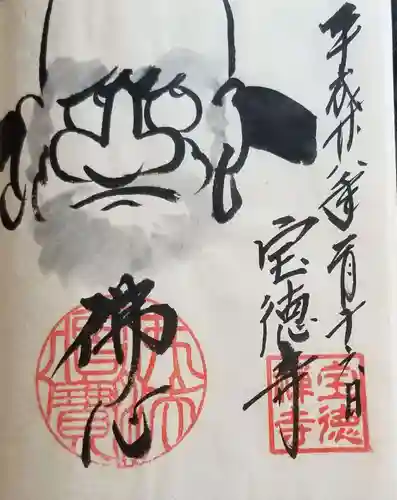 平成廿八年月十六日
宝徳寺
佛心
佛法僧寳
宝徳禅寺